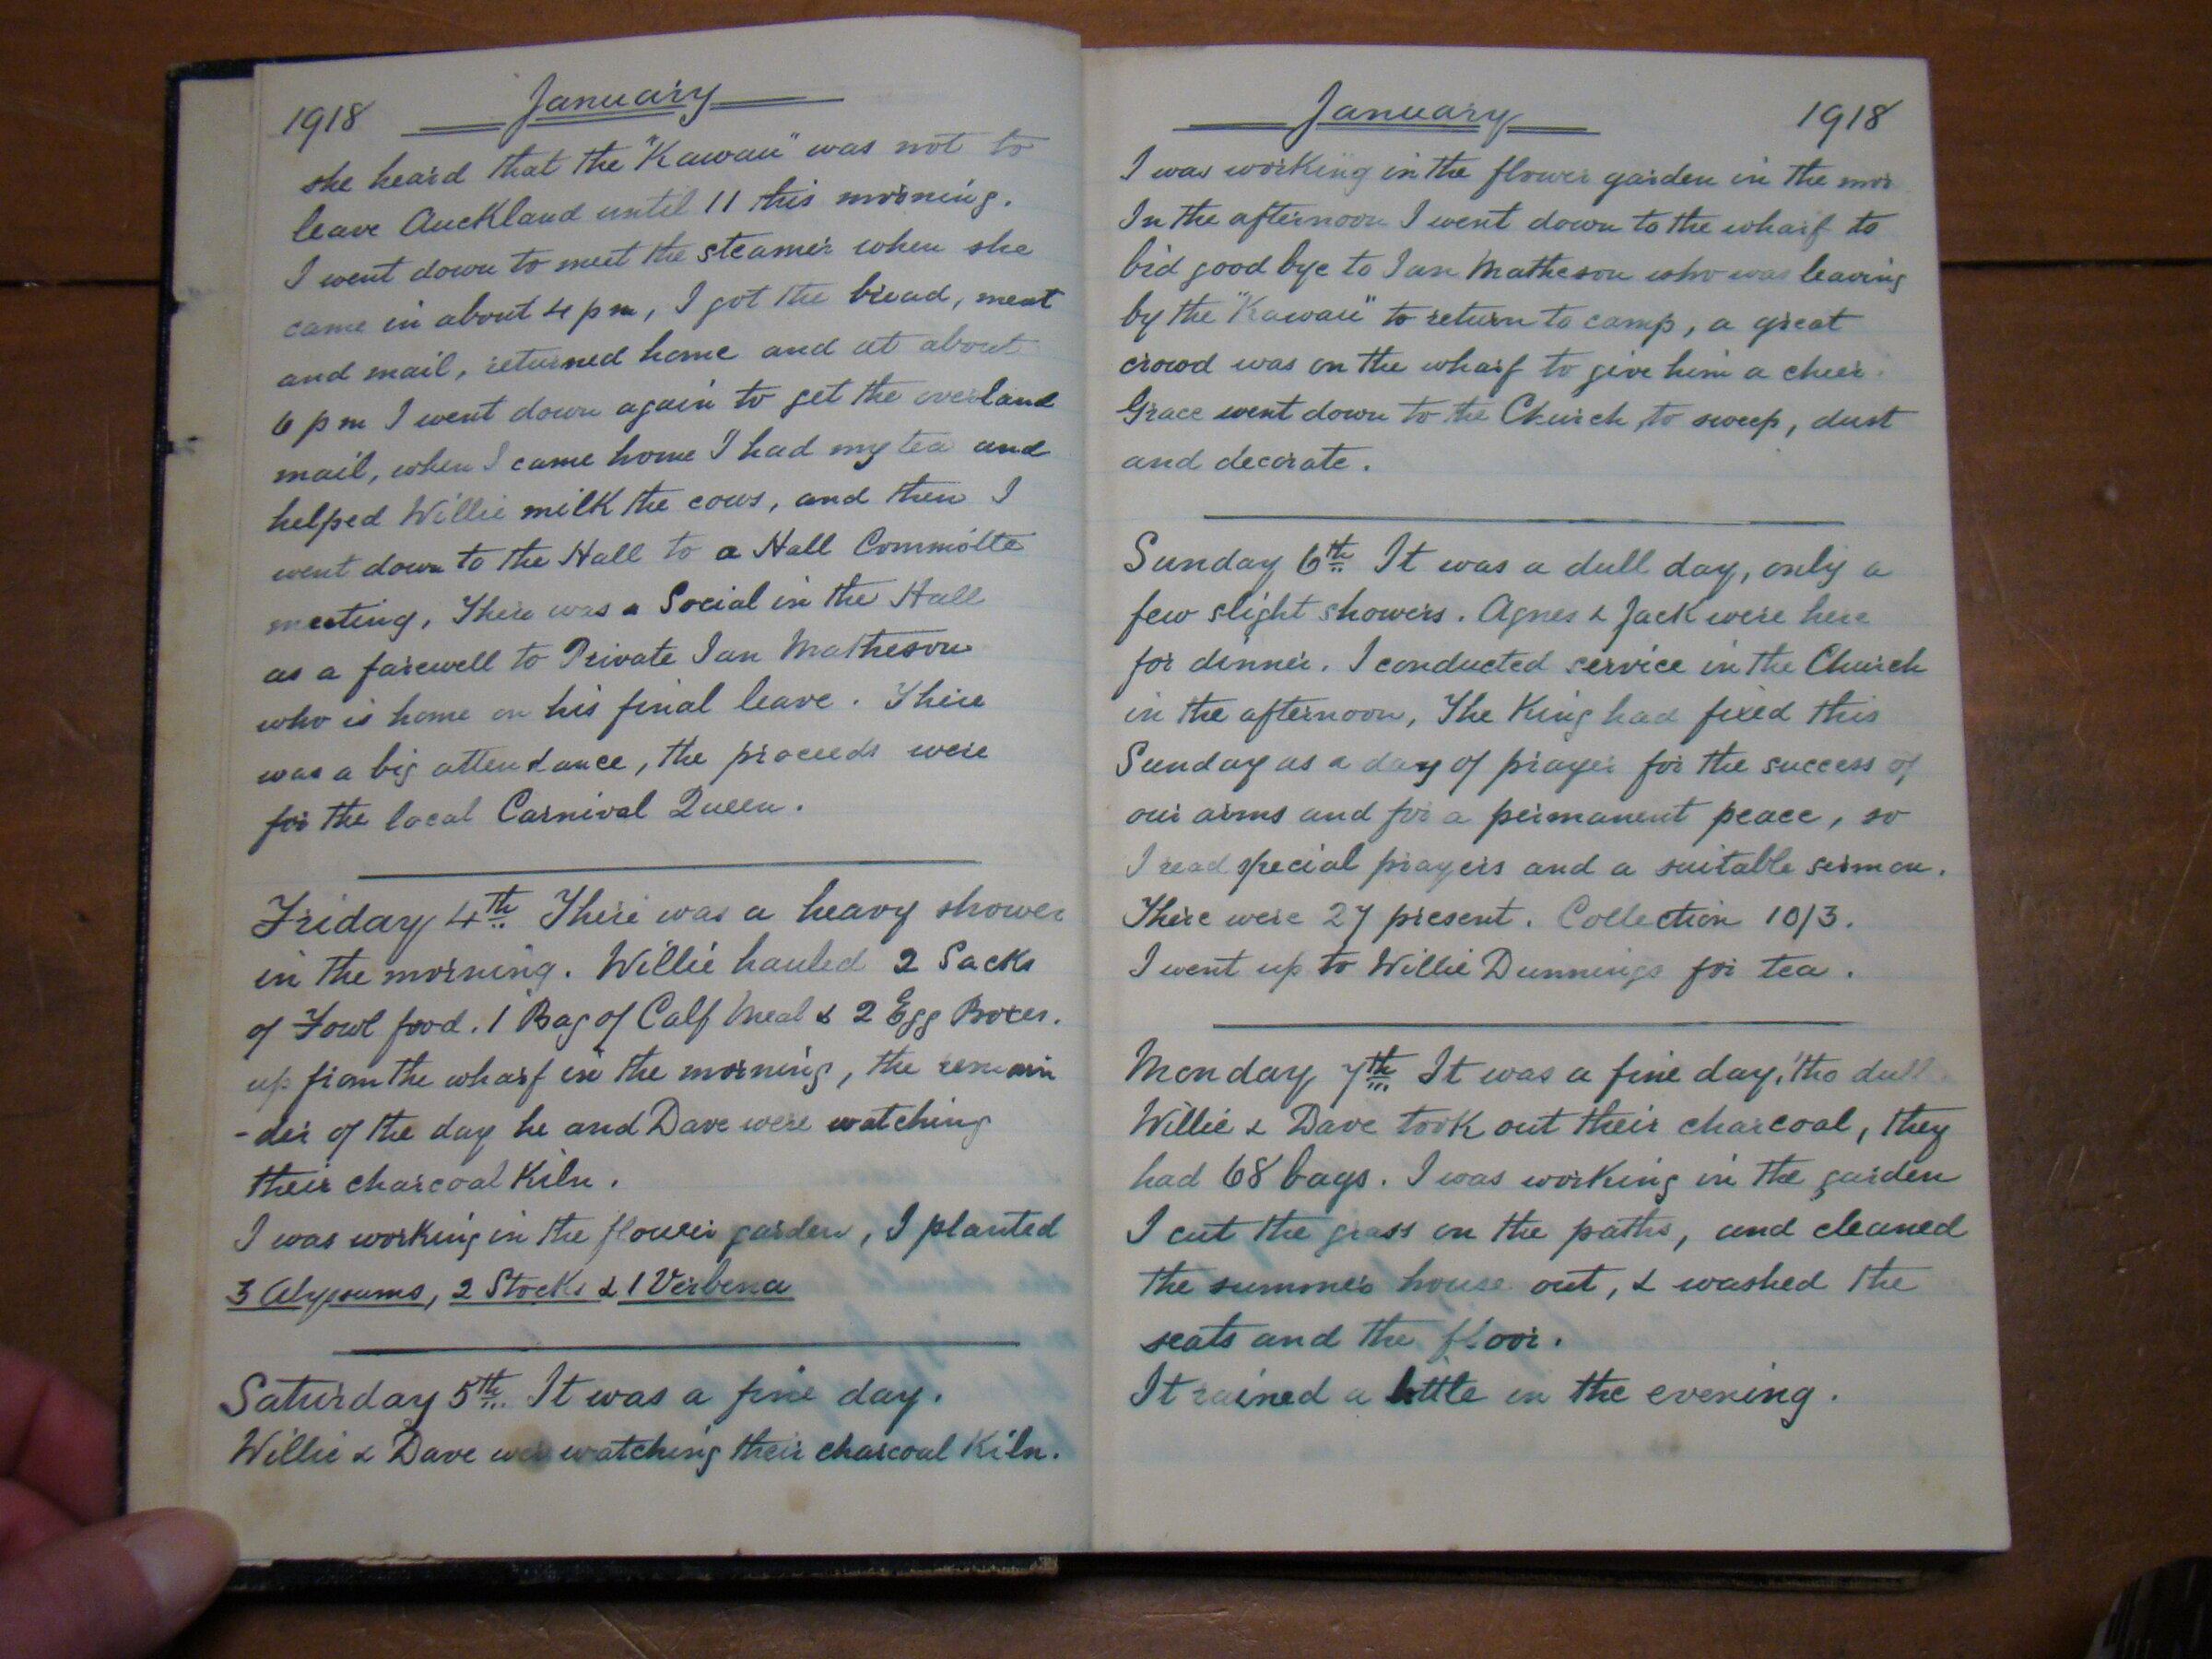 1918 January
she heard that the "Kawau" was not to
leave Auckland until 11 this morning.
I went down to meet the steamer when she
came in about 4 pm, I got the bread, meat
and mail, returned home and at about
6 pm I went down again to get the overland
mail, when I came home I had my tea and
helped Willie milk the cows, and then I
went down to the Hall to a Hall Committe
meeting, There was a Social in the Hall
as a farewell to Private Ian Matheson
who is home on his final leave. There
was a big attendance, the proceeds were
for the local Carnival Queen.
Friday 4th It There was a heavy shower
in the morning. Willie hauled 2 Sacks
of Fowl food. 1 Bag of Calf Meal & 2 Egg Boxes.
up from the wharf in the morning, the remain
-der of the day he and Dave were watching
their charcoal Kiln.
I was working in the flower garden, I planted
3 Alyssums, 2 Stocks & 1 Verbena
Saturday 5th It was a fine day.
Willie & Dave were watching their charcoal Kiln.
January 1918
I was working in the flower garden in the mor
In the afternoon I went down to the wharf to
bid good bye to Ian Matheson who was leaving
by the "Kawau" to return to camp, a great
crowd was on the wharf to give him a cheer.
Grace went down to the Church, to sweep, dust
and decorate.
Sunday 6th It was a dull day, only a
few slight showers. Agnes & Jack were here
for dinner. I conducted service in the Church
in the afternoon, The King had fixed this
Sunday as a day of prayer for the success of
our arms and for a permanent peace, so
I read special prayers and a suitable sermon.
There were 27 present. Collection 10/3.
I went up to Willie Dunnings for tea.
Monday 7th It was a fine day, tho dull
Willie & Dave took out their charcoal, they
had 68 bags. I was working in the garden
I cut the grass on the paths, and cleaned
the summer house out, & washed the
seats and the floor.
It rained a little in the evening.